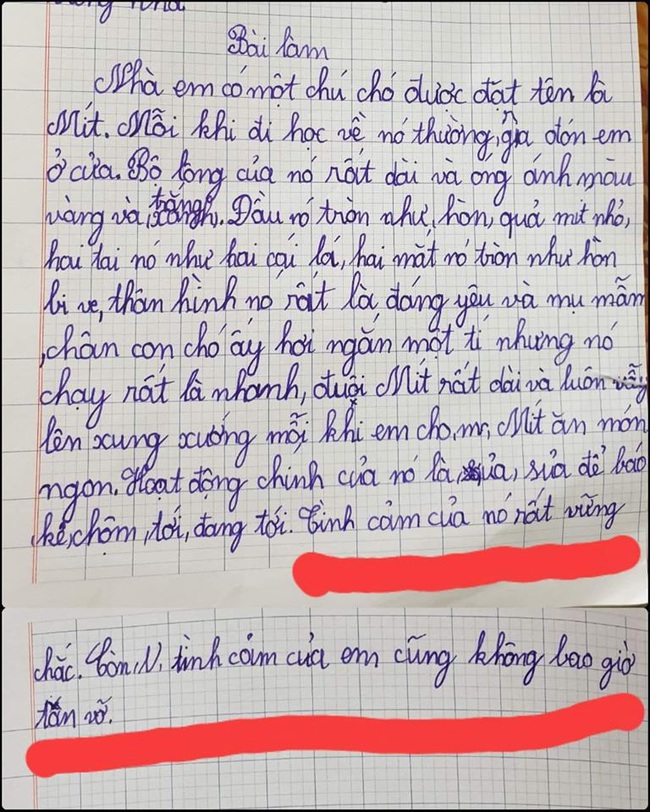 Bài làm
Nhà em có một chú chó được đặt tên là
Mít. Mỗi khi đi học về nó thường, ra đón em
ở cửa. Bộ lông của nó rất dài và ong ánh màu
vàng và trắng. Đầu nó tròn như, hòn, quả mít nhỏ,
hai tai nó như hai cái lá, hai mắt nó tròn như hòn
bi ve, thân hình nó rất là, đáng yêu và mụ mẫm
, chân con chó ấy hơi ngắn một tí nhưng nó
chạy rất là nhanh, đuôi Mít rất dài và luôn vẫy
lên xung xướng mỗi khi em cho, Mít ăn món
ngon. Hoạt động chính của nó là, sủa, sủa để báo
kẻ, chộm, tới, đang tới. Tình cảm của nó rất vững
chắc. Còn, tình cảm của em cũng không bao giờ
tan vỡ.